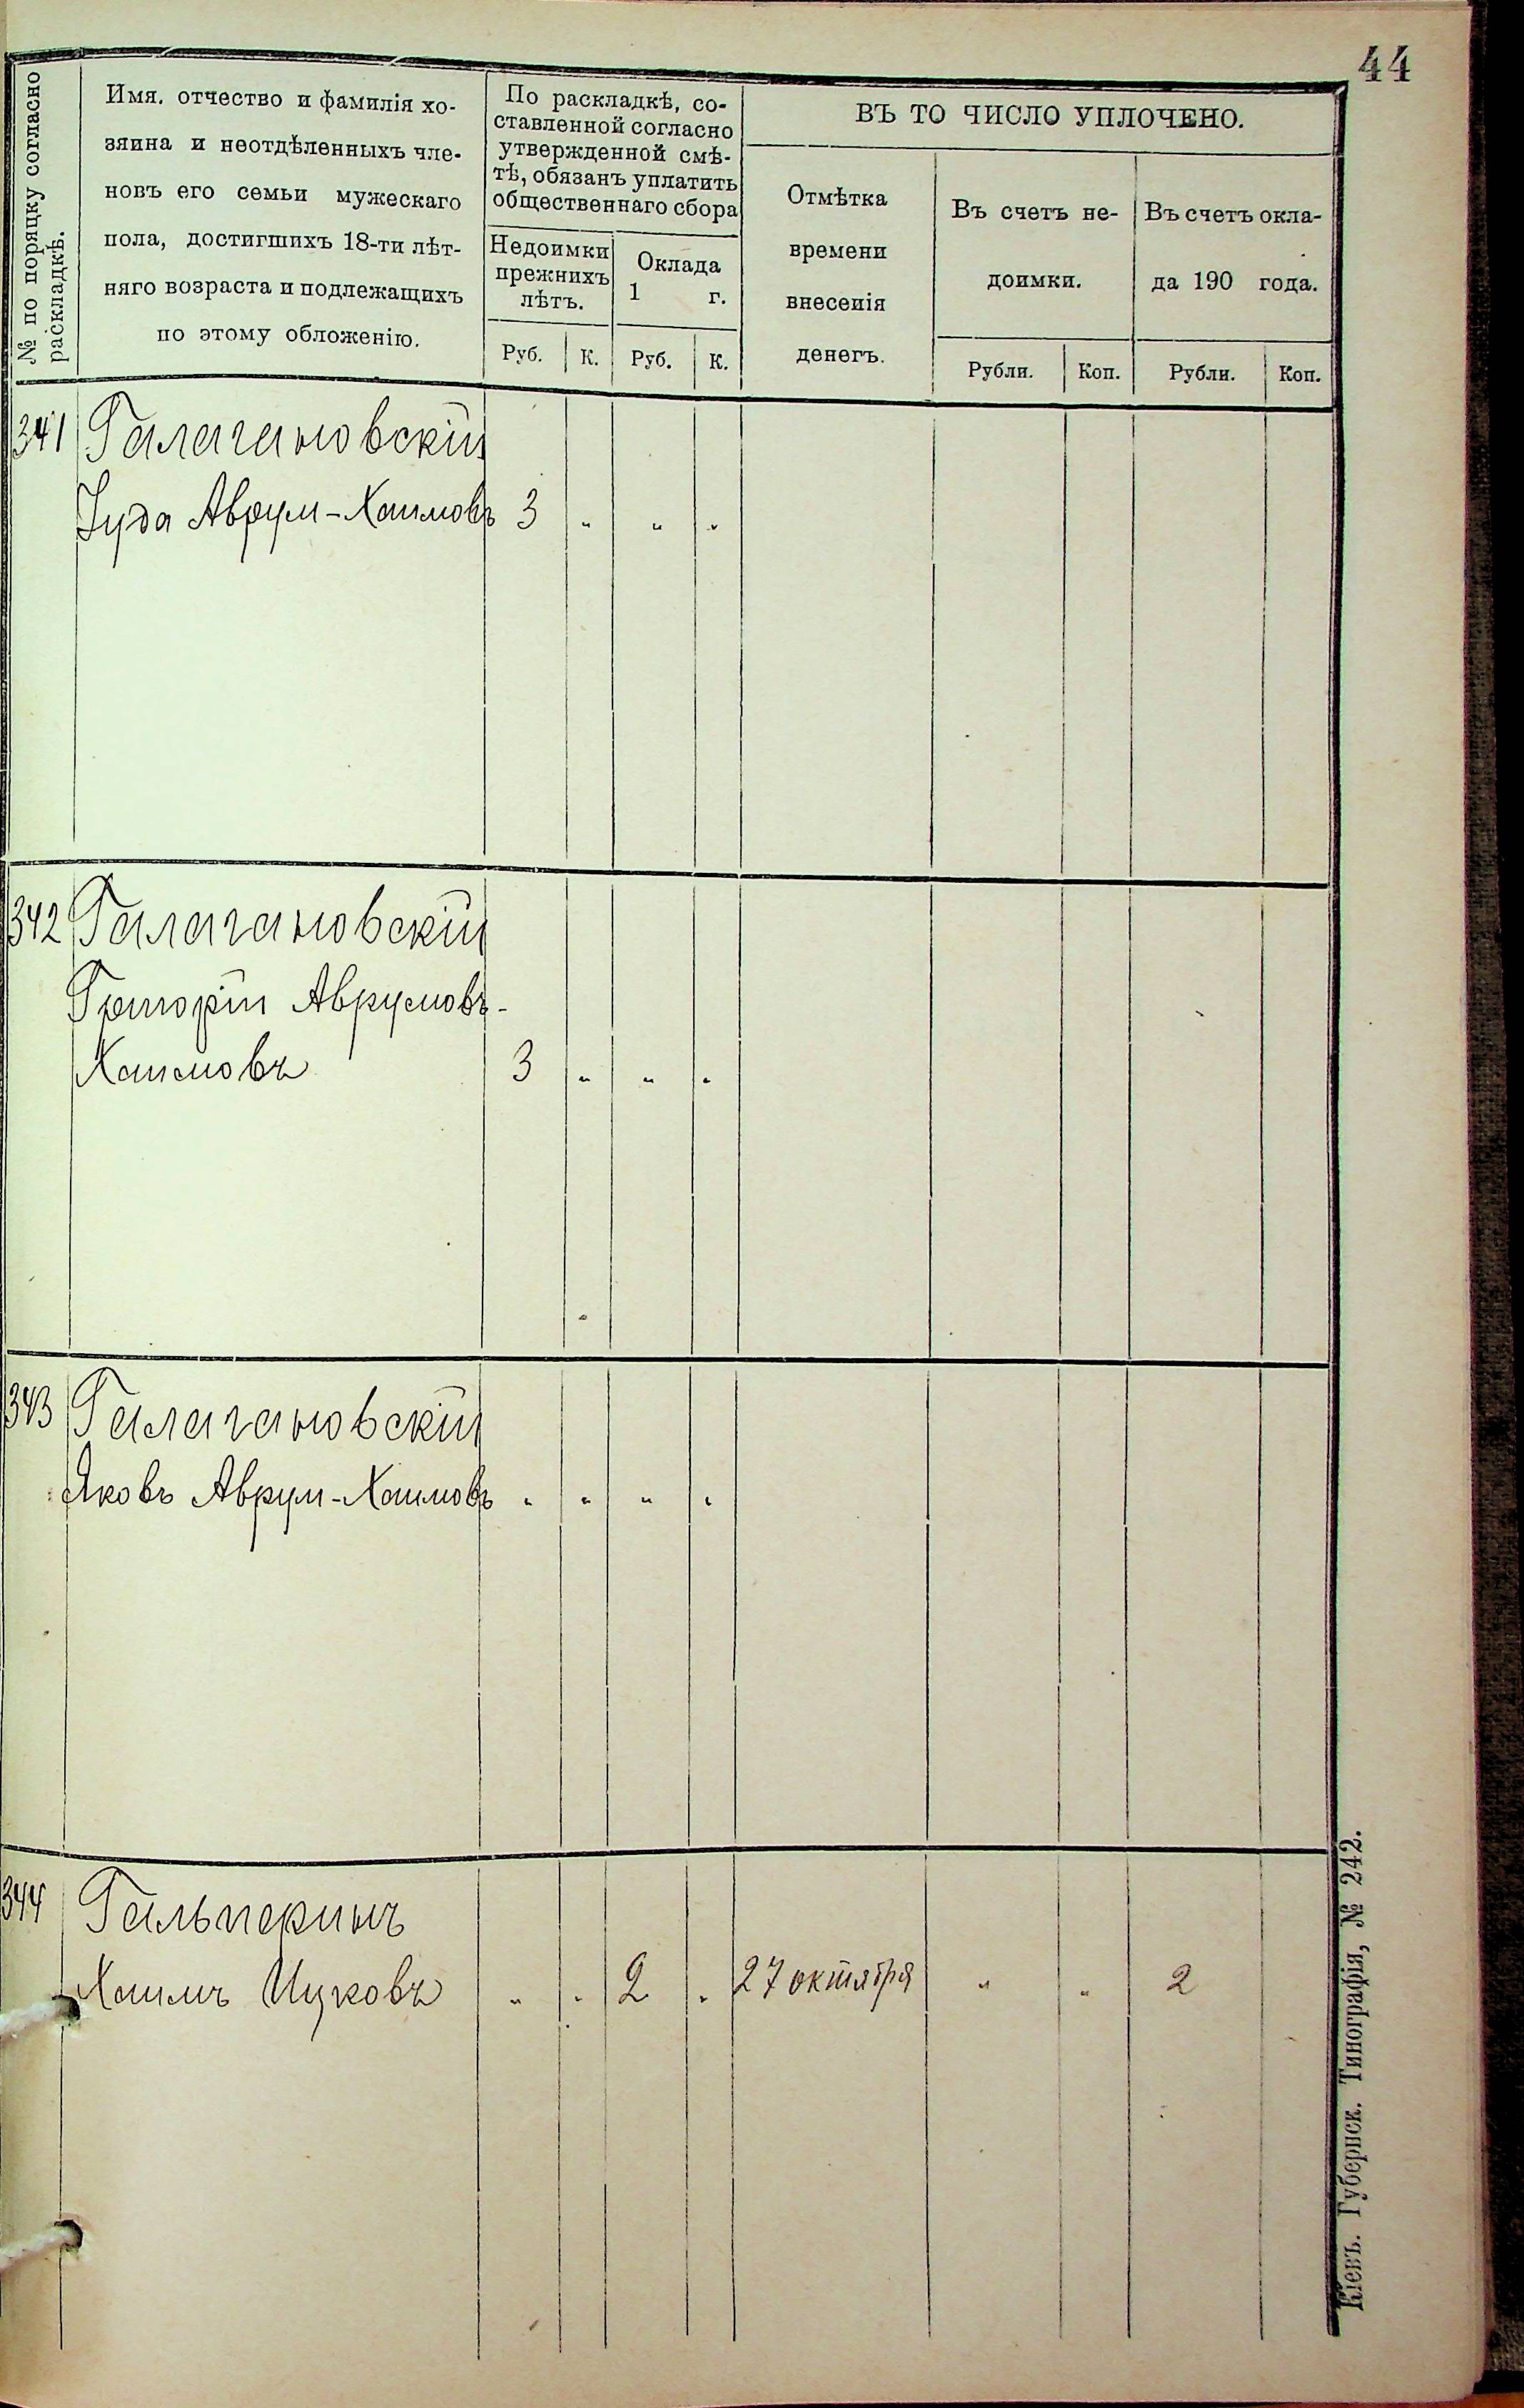 44
№ по порядку согласно
раскладкѣ.
Имя. отчество и фамилія хо-
зяина и неотдѣленныхъ чле-
новъ его семьи мужескаго
пола, достигшихъ 18-ти лѣт-
няго возраста и подлежащихъ
по этому обложенію.
По раскладкѣ, со-
ставленной согласно
утвержденной смѣ-
тѣ, обязанъ уплатить
общественнаго сбора
Недоимки
прежнихъ
лѣтъ.
Оклада
1 г.
Руб. К. Руб. К.
ВЪ ТО ЧИСЛО УПЛОЧЕНО.
Отмѣтка
времени
внесенія
денегъ.
Въ счетъ не-
доимки.
Въ счетъ окла-
да 190 года.
Рубли. Коп. Рубли. Коп.
341 Галагановскій
Іуда Аврум-Хаимовъ 3 " " "
342 Галагановскій
Григорій Аврумовъ-
Хаимовъ 3 " " "
343 Галагановскій
Яковъ Аврум-Хаимовъ " " " "
344 Гальперинъ
Хаимъ Ицковъ " " 2 " 27 октября " " 2
Кіевъ. Губернск. Типографія, № 242.